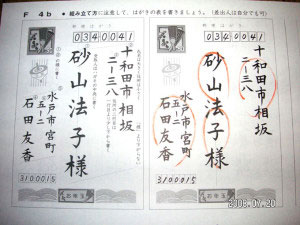 F 4b ●組み立て方に注意して、はがきの表を書きましょう。(差出人は自分でも可)
0340041
十和田市相坂
二ー三八
砂山法子様
水戸市宮町
五ー二
石田友香
3100015
0340041
十和田市相坂
二ー三八
砂山法子様
水戸市宮町
五ー二
石田友香
3100015
2009/07/20